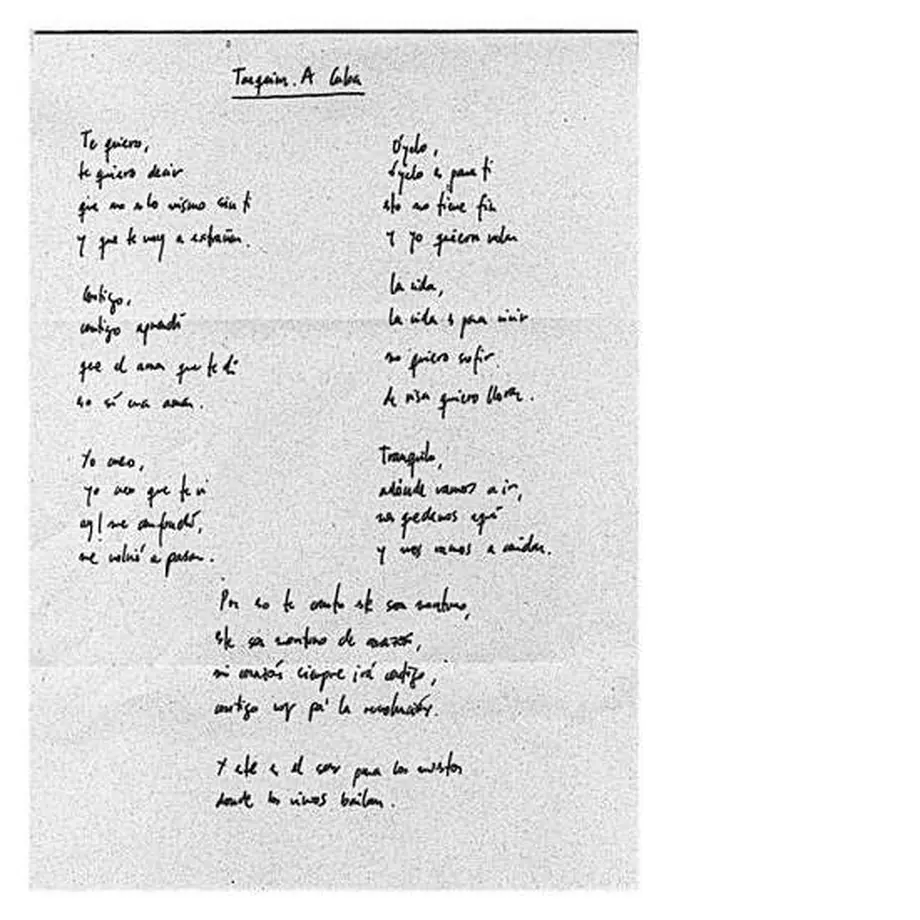 Tarquin. A Cuba
Te quiero,
te quiero decir
que no es lo mismo sin ti
y que te voy a extrañar.
Contigo,
contigo aprendí
que el amor que te di
no sí era amor.
Yo creo,
yo creo que te vi
ay! me confundí,
me volvió a pasar.
Óyelo,
óyelo es para ti
esto no tiene fin
y yo quiero volar
La vida,
la vida es para vivir
no quiero sufrir.
de risa quiero llorar.
Tranquilo,
adónde vamos a ir,
nos quedamos aquí
y nos vamos a cuidar.
Por eso te canto este son montuno,
este son montuno de corazón,
mi corazón siempre irá contigo,
contigo voy pa' la revolución.
Y este es el son para los muertos
donde los vivos bailan.